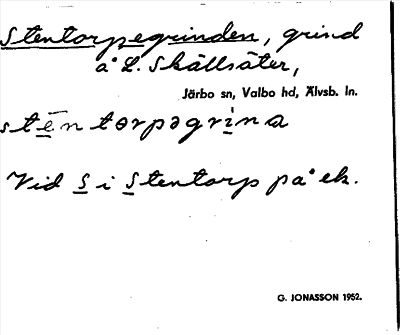 Stentorpegrinden, grind
å L. Skällsäter,
Järbo sn, Valbo hd, Älvsb. ln.
stentorpəgrina
Vid S i Stentorp på ek.
G. JONASSON 1952.